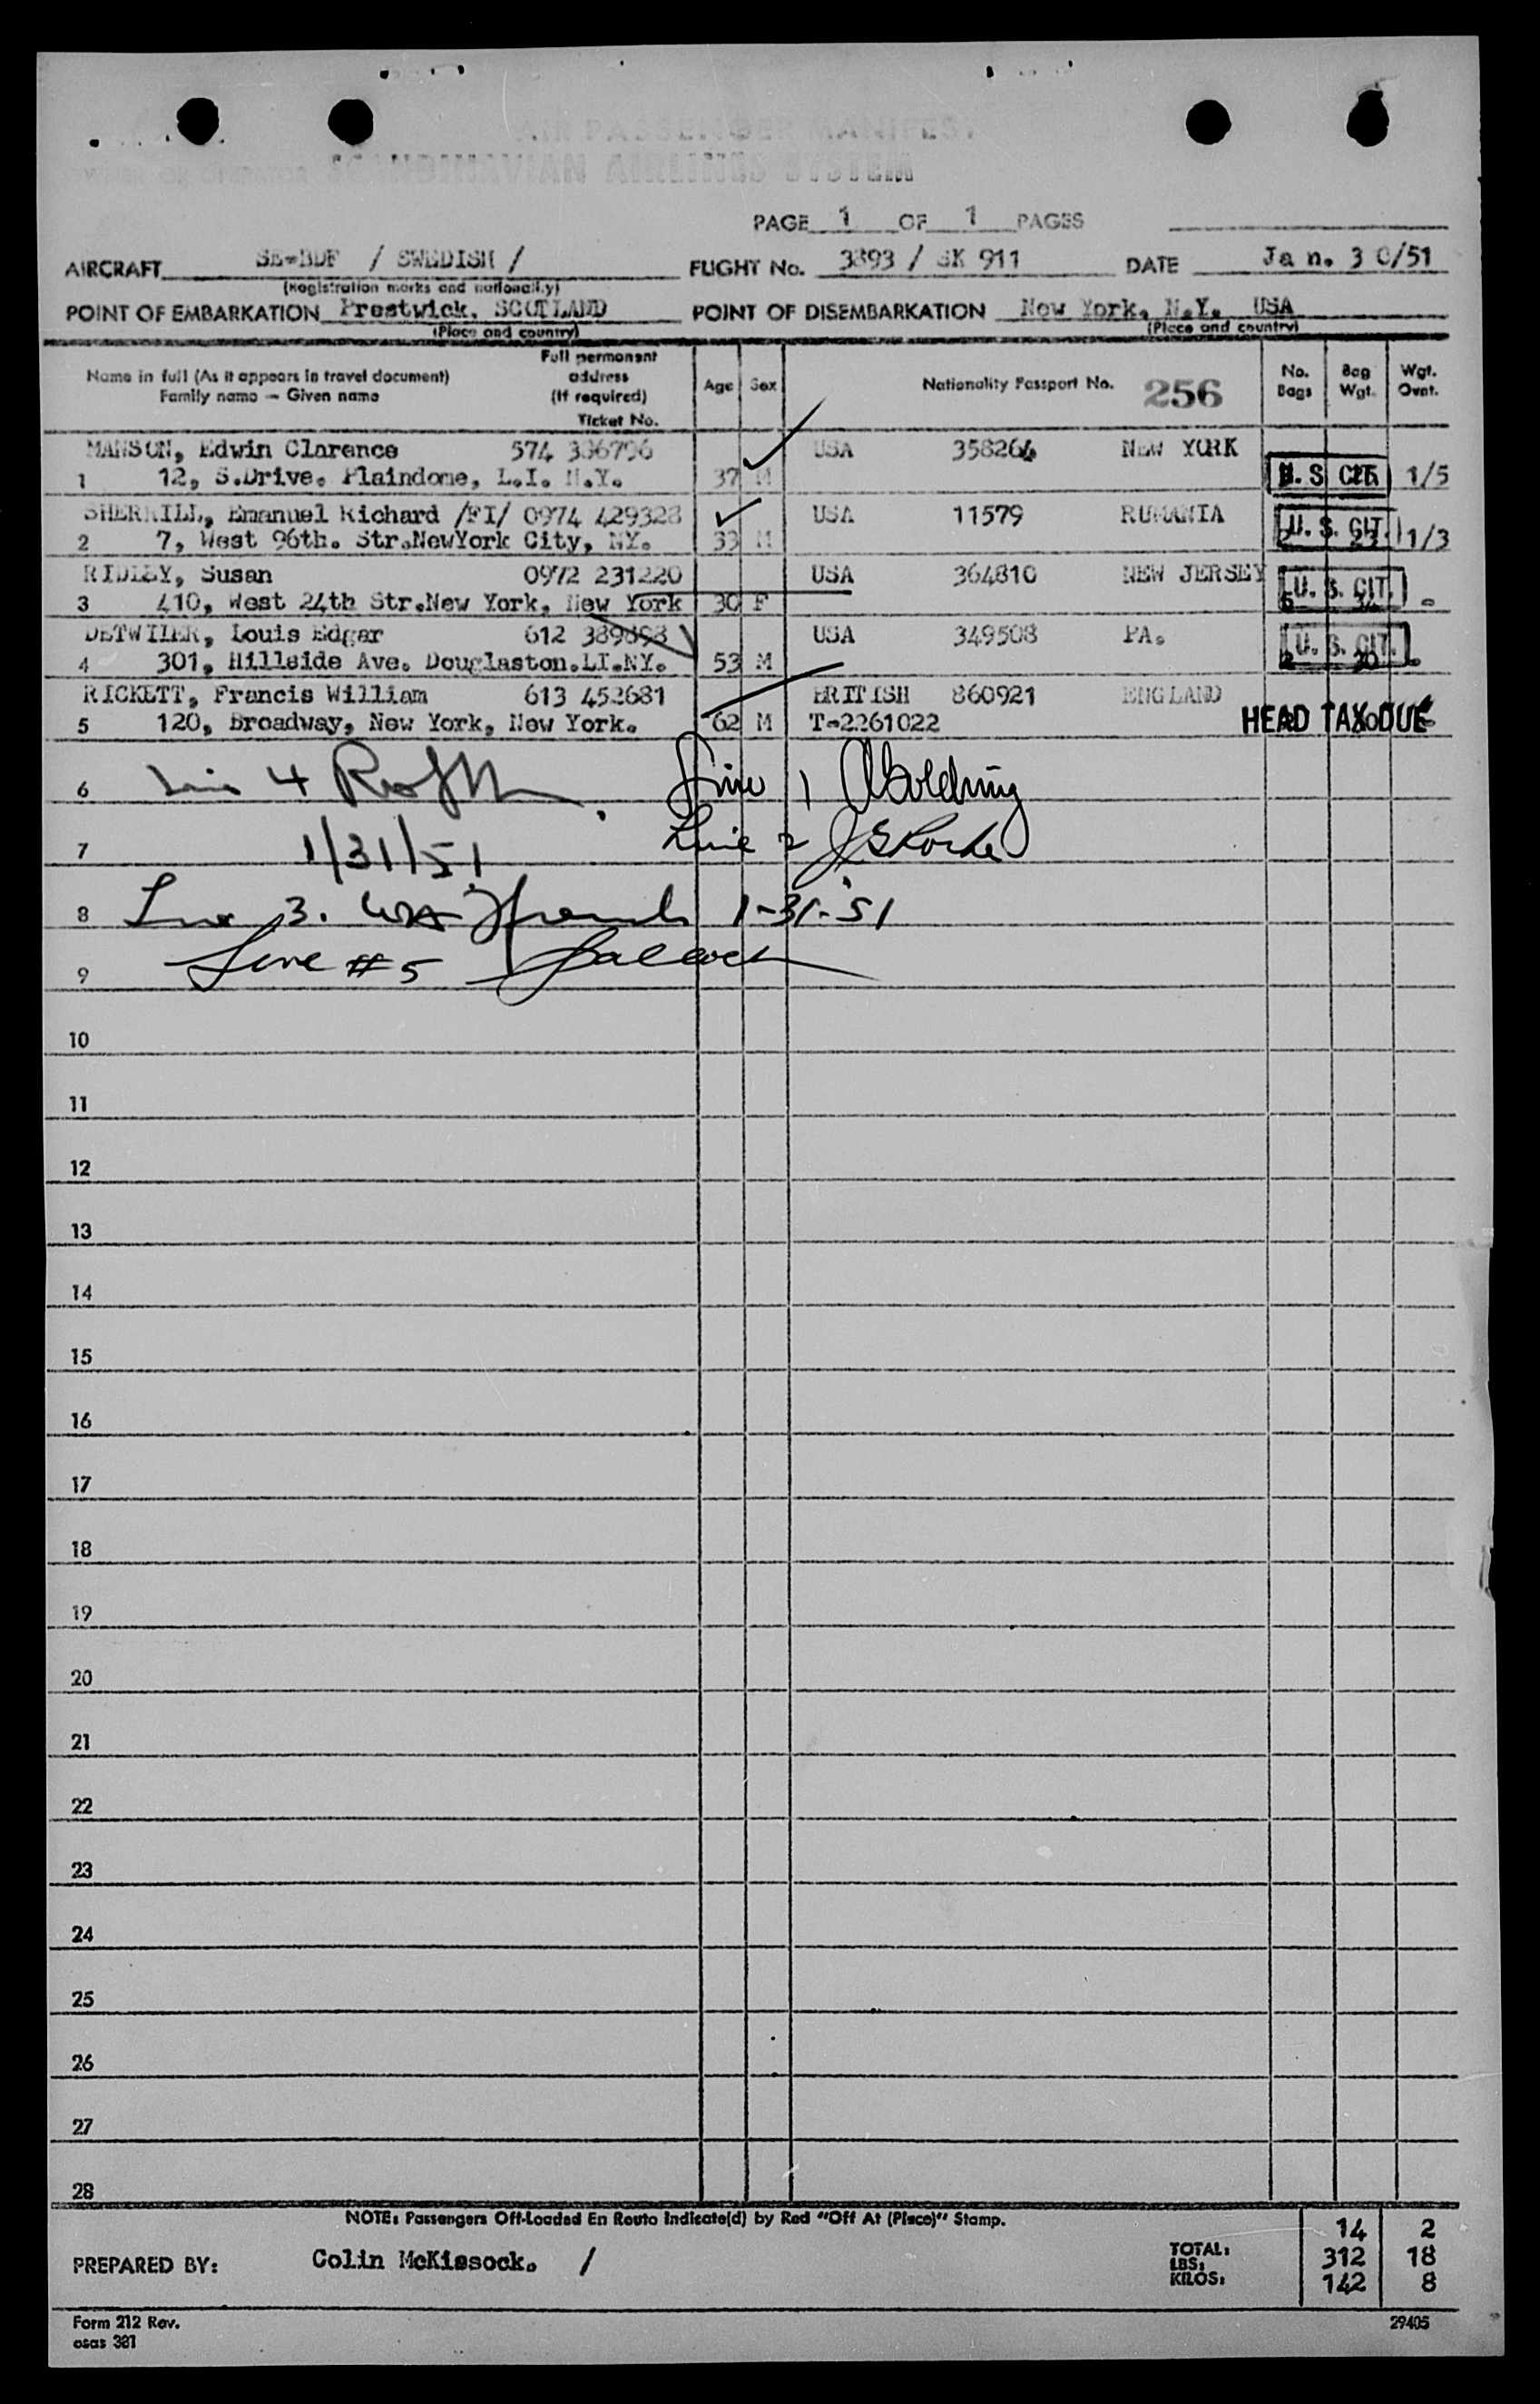 AIR PASSENGER MANIFEST
OWNER OR OPERATOR SCANDINAVIAN AIRLINES SYSTEM
PAGE 1 OF 1 PAGES
AIRCRAFT SE-BDF / SWEDISH / FLIGHT No. 3393 / SK 911 DATE Jan. 30/51
(Registration marks and nationality)
POINT OF EMBARKATION Prestwick, SCOTLAND POINT OF DISEMBARKATION New York, N.Y. USA
(Place and country) (Place and country)
Name in full (As it appears in travel document) Family name — Given name Full permanent address (If required) Ticket No. Age Sex Nationality Passport No. 256 No. Bags Bag Wgt. Wgt. Ovnt.
MANSON, Edwin Clarence 574 306796 USA 358264 NEW YORK
1 12, S.Drive. Plaindome, L.I. N.Y. 37 M U.S CIT. 1/5
SHERRILL, Emanuel Richard /FI/ 0974 429328 USA 11579 RUMANIA
2 7, West 96th. Str.NewYork City, NY. 33 M U. S. CIT. 1/3
RIDLEY, Susan 0972 231220 USA 364810 NEW JERSEY
3 410, West 24th Str.New York, New York 30 F U. S. CIT. -
DETWILER, Louis Edgar 612 389893 USA 349508 PA.
4 301, Hillside Ave. Douglaston.LI.NY. 53 M U. S. CIT. -
RICKETT, Francis William 613 452681 BRITISH 860921 ENGLAND
5 120, Broadway, New York, New York. 62 M T-2261022 HEAD TAX DUE
6 Line 4 Line 1
7 1/31/51 Line 2
8 Line 3. 1-31-51
9 Line #5
10
11
12
13
14
15
16
17
18
19
20
21
22
23
24
25
26
27
28
NOTE: Passengers Off-Loaded En Route Indicate(d) by Red "Off At (Place)" Stamp.
PREPARED BY: Colin McKissock. /
TOTAL: 14 2
LBS: 312 18
KILOS: 142 8
Form 212 Rev. 29405
osas 301